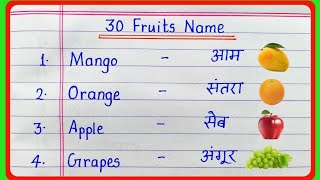 30 Fruits Name
1. Mango - आम
2. Orange - संतरा
3. Apple - सेब
4. Grapes - अंगूर